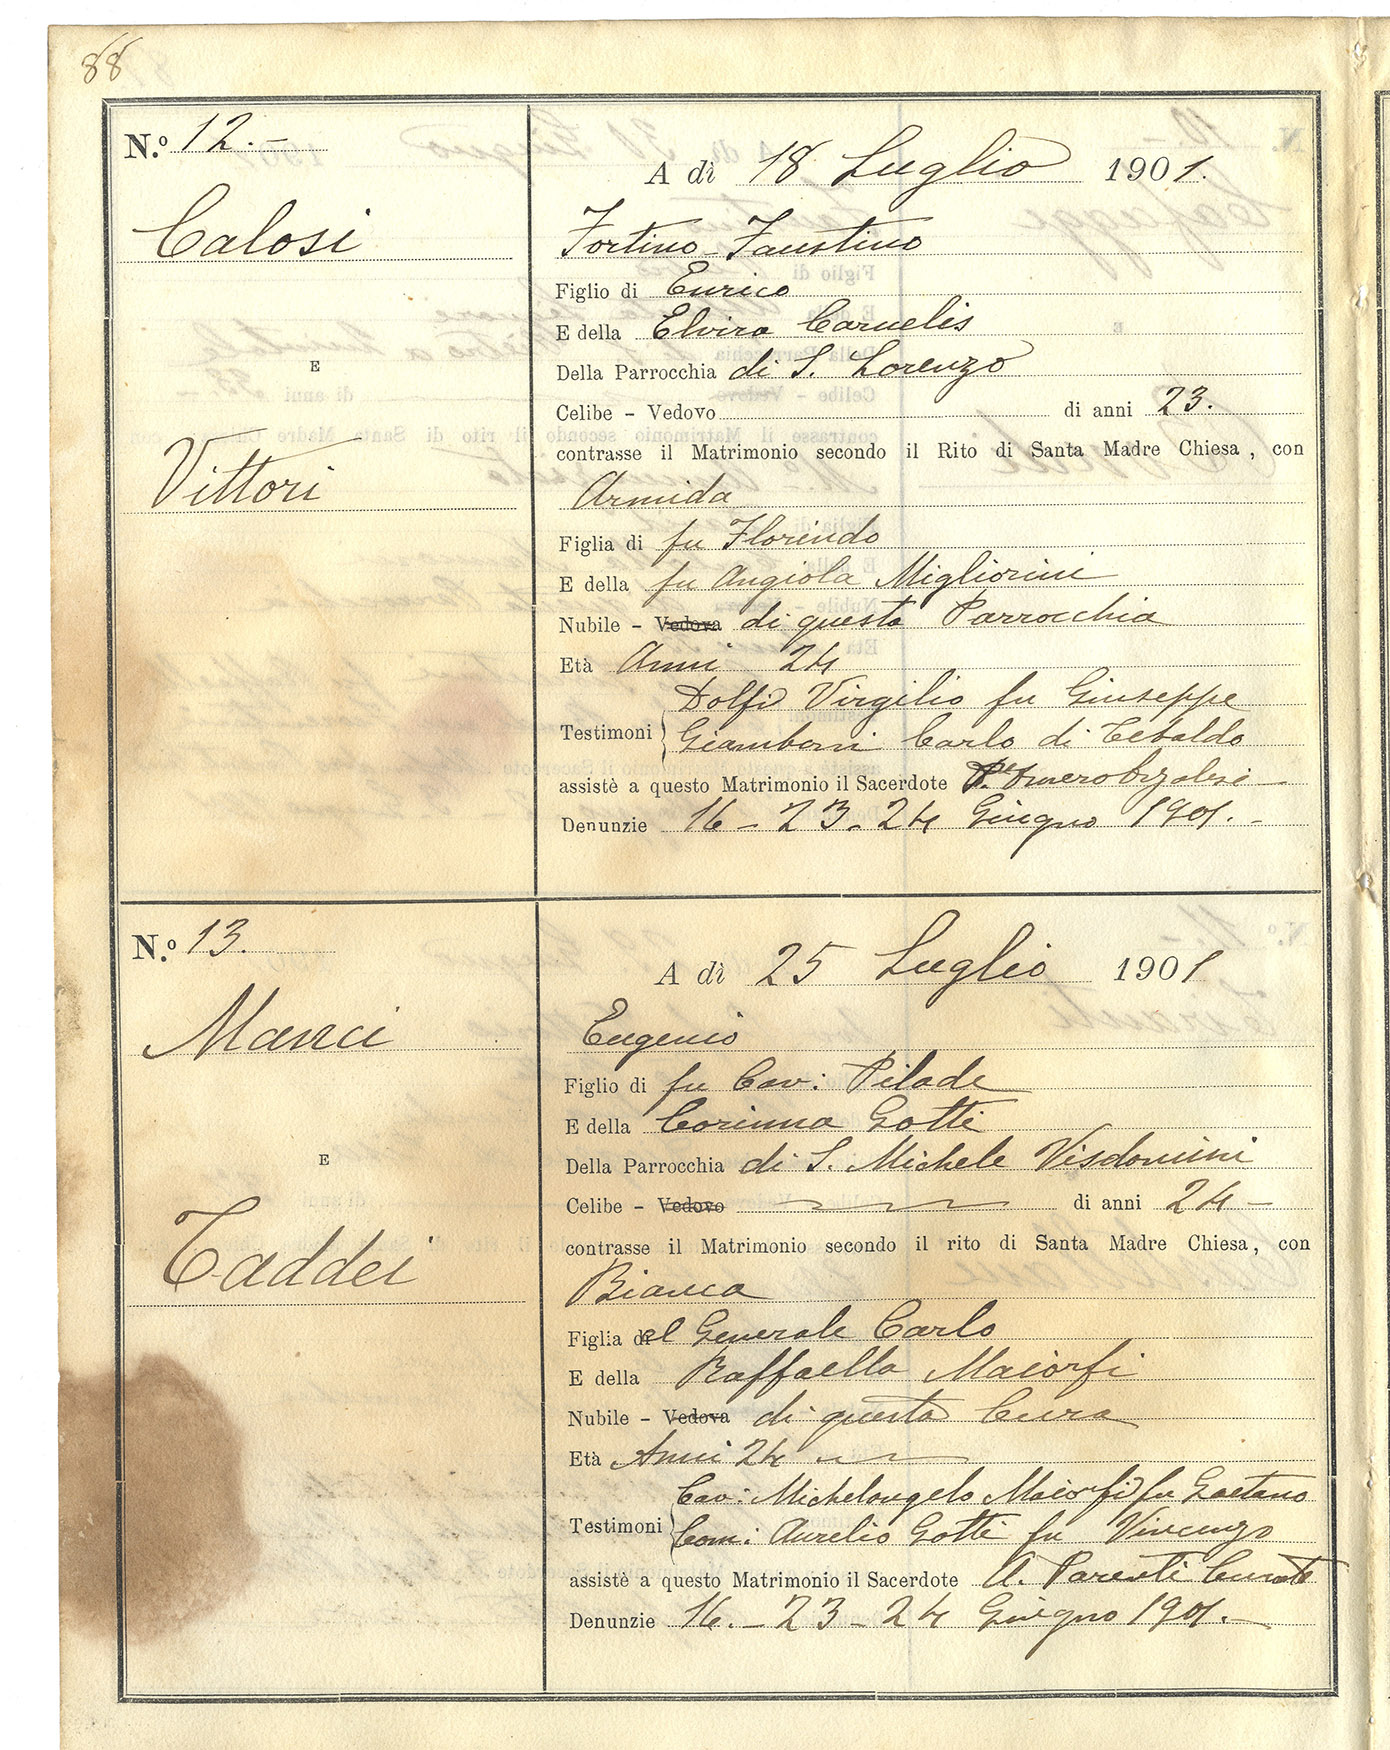 88
N.º 12.-
A dì 18 Luglio 1901.
Calosi
Fortino-Faustino
Figlio di Enrico
E della Elvira Carnelis
E
Della Parrocchia di S. Lorenzo
Celibe - Vedovo di anni 23.
contrasse il Matrimonio secondo il Rito di Santa Madre Chiesa, con
Vittori
Armida
Figlia di fu Florindo
E della fu Angiola Migliorini
Nubile - Vedova di questa Parrocchia
Età Anni 24
Dolfi Virgilio fu Giuseppe
Testimoni Giamboni Carlo di Tebaldo
assistè a questo Matrimonio il Sacerdote
Denunzie 16 - 23 - 24 Giugno 1901.-
N.º 13.
A dì 25 Luglio 1901
Manci
Eugenio
Figlio di fu Cav: Pilade
E della Corinna Gotti
E
Della Parrocchia di S. Michele Visdomini
Celibe - Vedovo di anni 24-
contrasse il Matrimonio secondo il rito di Santa Madre Chiesa, con
Taddei
Bianca
Figlia del Generale Carlo
E della Raffaella Maiorfi
Nubile - Vedova di questa Cura
Età Anni 24
Cav: Michelangelo Maiorfi fu Gaetano
Testimoni Com: Aurelio Gotti fu Vincenzo
assistè a questo Matrimonio il Sacerdote A. Parenti Curato
Denunzie 16. - 23 - 24 Giugno 1901.-